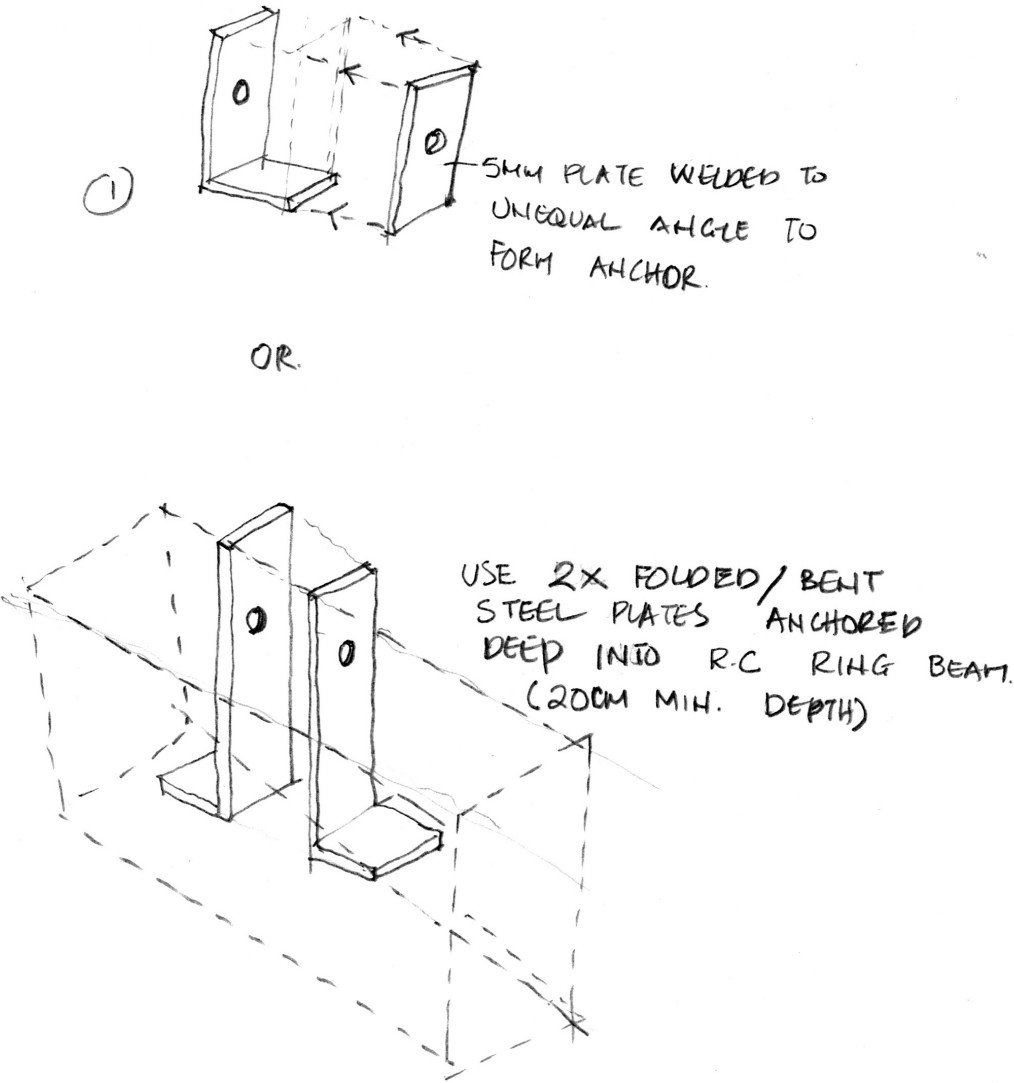 1
5MM PLATE WELDED TO
UNEQUAL ANGLE TO
FORM ANCHOR.
OR.
USE 2X FOLDED/BENT
STEEL PLATES ANCHORED
DEEP INTO R.C RING BEAM.
(20CM MIN. DEPTH)